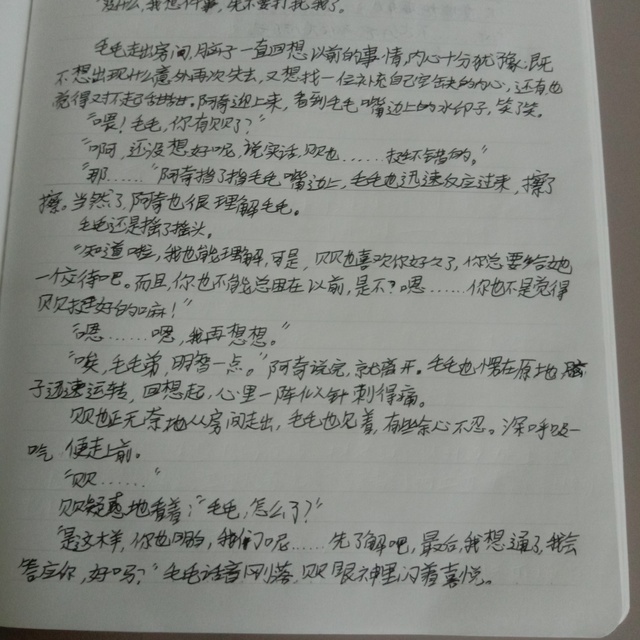 没什么，我想件事，先不要打扰我了。
毛毛走出房间，脑子一直回想以前的事情，内心十分犹豫，既
不想出现什么意外再次失去，又想找一位补充自己空缺的内心，还有也
觉得对不起甜甜。阿奇迎上来，看到毛毛嘴边上的水印子，笑了笑。
“喂！毛毛，你有贝贝了？”
“啊，还没想好呢，说实话，贝贝也……挺不错的。”
“那……”阿奇挡了挡毛毛嘴边上，毛毛也迅速反应过来，擦了
擦。当然了，阿奇也很理解毛毛。
毛毛还是摇了摇头。
“知道啦，我也能理解，可是，贝贝也喜欢你好久了，你总要给她
一个交待吧。而且，你也不能总困在以前，是不？嗯……你也不是觉得
贝贝挺好的嘛！”
“嗯……嗯，我再想想。”
“唉，毛毛弟，明智一点。”阿奇说完，就离开。毛毛也愣在原地，脑
子迅速运转，回想起，心里一阵似针刺得痛。
贝贝也正无奈地从房间走出，毛毛也见着，有些余心不忍。深呼吸一
吃，便走上前。
“贝贝……”
贝贝疑惑地看着：“毛毛，怎么了？”
“是这样，你也明白，我们呢……先了解吧，最后，我想通了，我会
答应你，好吗？”毛毛话音刚落，贝贝眼神里闪着喜悦。